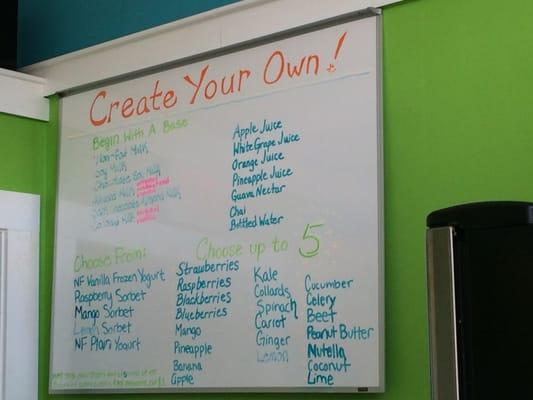 Create Your Own!
Begin With A Base
Non-Fat Milk
Soy Milk
Chocolate Soy Milk
Almond Milk
Dark Chocolate Almond Milk
Coconut Milk
Apple Juice
White Grape Juice
Orange Juice
Pineapple Juice
Guava Nectar
Chai
Bottled Water
Choose From:
NF Vanilla Frozen Yogurt
Raspberry Sorbet
Mango Sorbet
Lemon Sorbet
NF Plain Yogurt
Choose up to 5
Strawberries
Raspberries
Blackberries
Blueberries
Mango
Pineapple
Banana
Apple
Kale
Collards
Spinach
Carrot
Ginger
Lemon
Cucumber
Celery
Beet
Peanut Butter
Nutella
Coconut
Lime